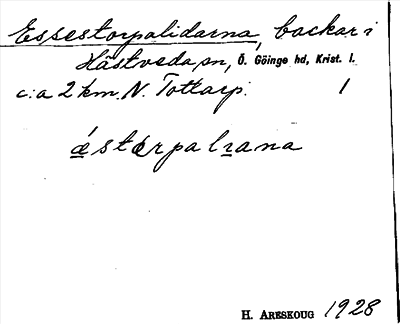 Essestorpalidarna, backar i
Hästveda sn, Ö. Göinge hd, Krist. l.
c:a 2 km. N. Tottarp. 1
éstórpalɪana
H. Areskoug 1928